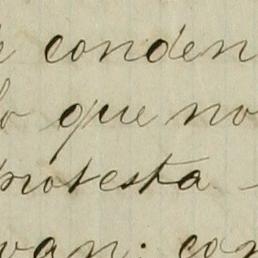 conden
lo que no
protesta
van: con